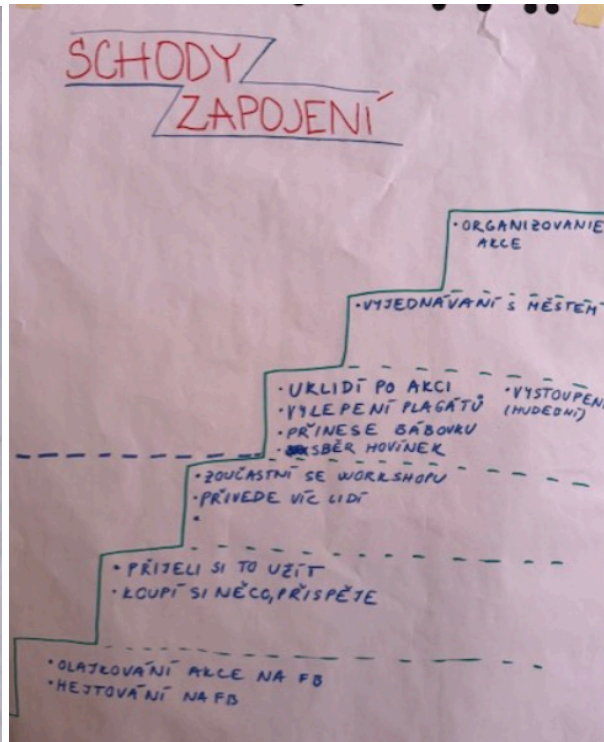 SCHODY
ZAPOJENÍ
• ORGANIZOVANIE
AKCE
• VYJEDNÁVANÍ S MĚSTEM
• UKLIDÍ PO AKCI
• VYLEPENÍ PLAGÁTŮ
• PŘINESE BÁBOVKU
• SBĚR HOVÍNEK
• VYSTOUPENÍ
(HUDEBNÍ)
• ZOUČASTNÍ SE WORKSHOPU
• PŘIVEDE VÍC LIDÍ
•
• PŘIJELI SI TO UŽÍT
• KOUPÍ SI NĚCO, PŘISPĚJE
• OLAJKOVÁNÍ AKCE NA FB
• HEJTOVÁNÍ NA FB